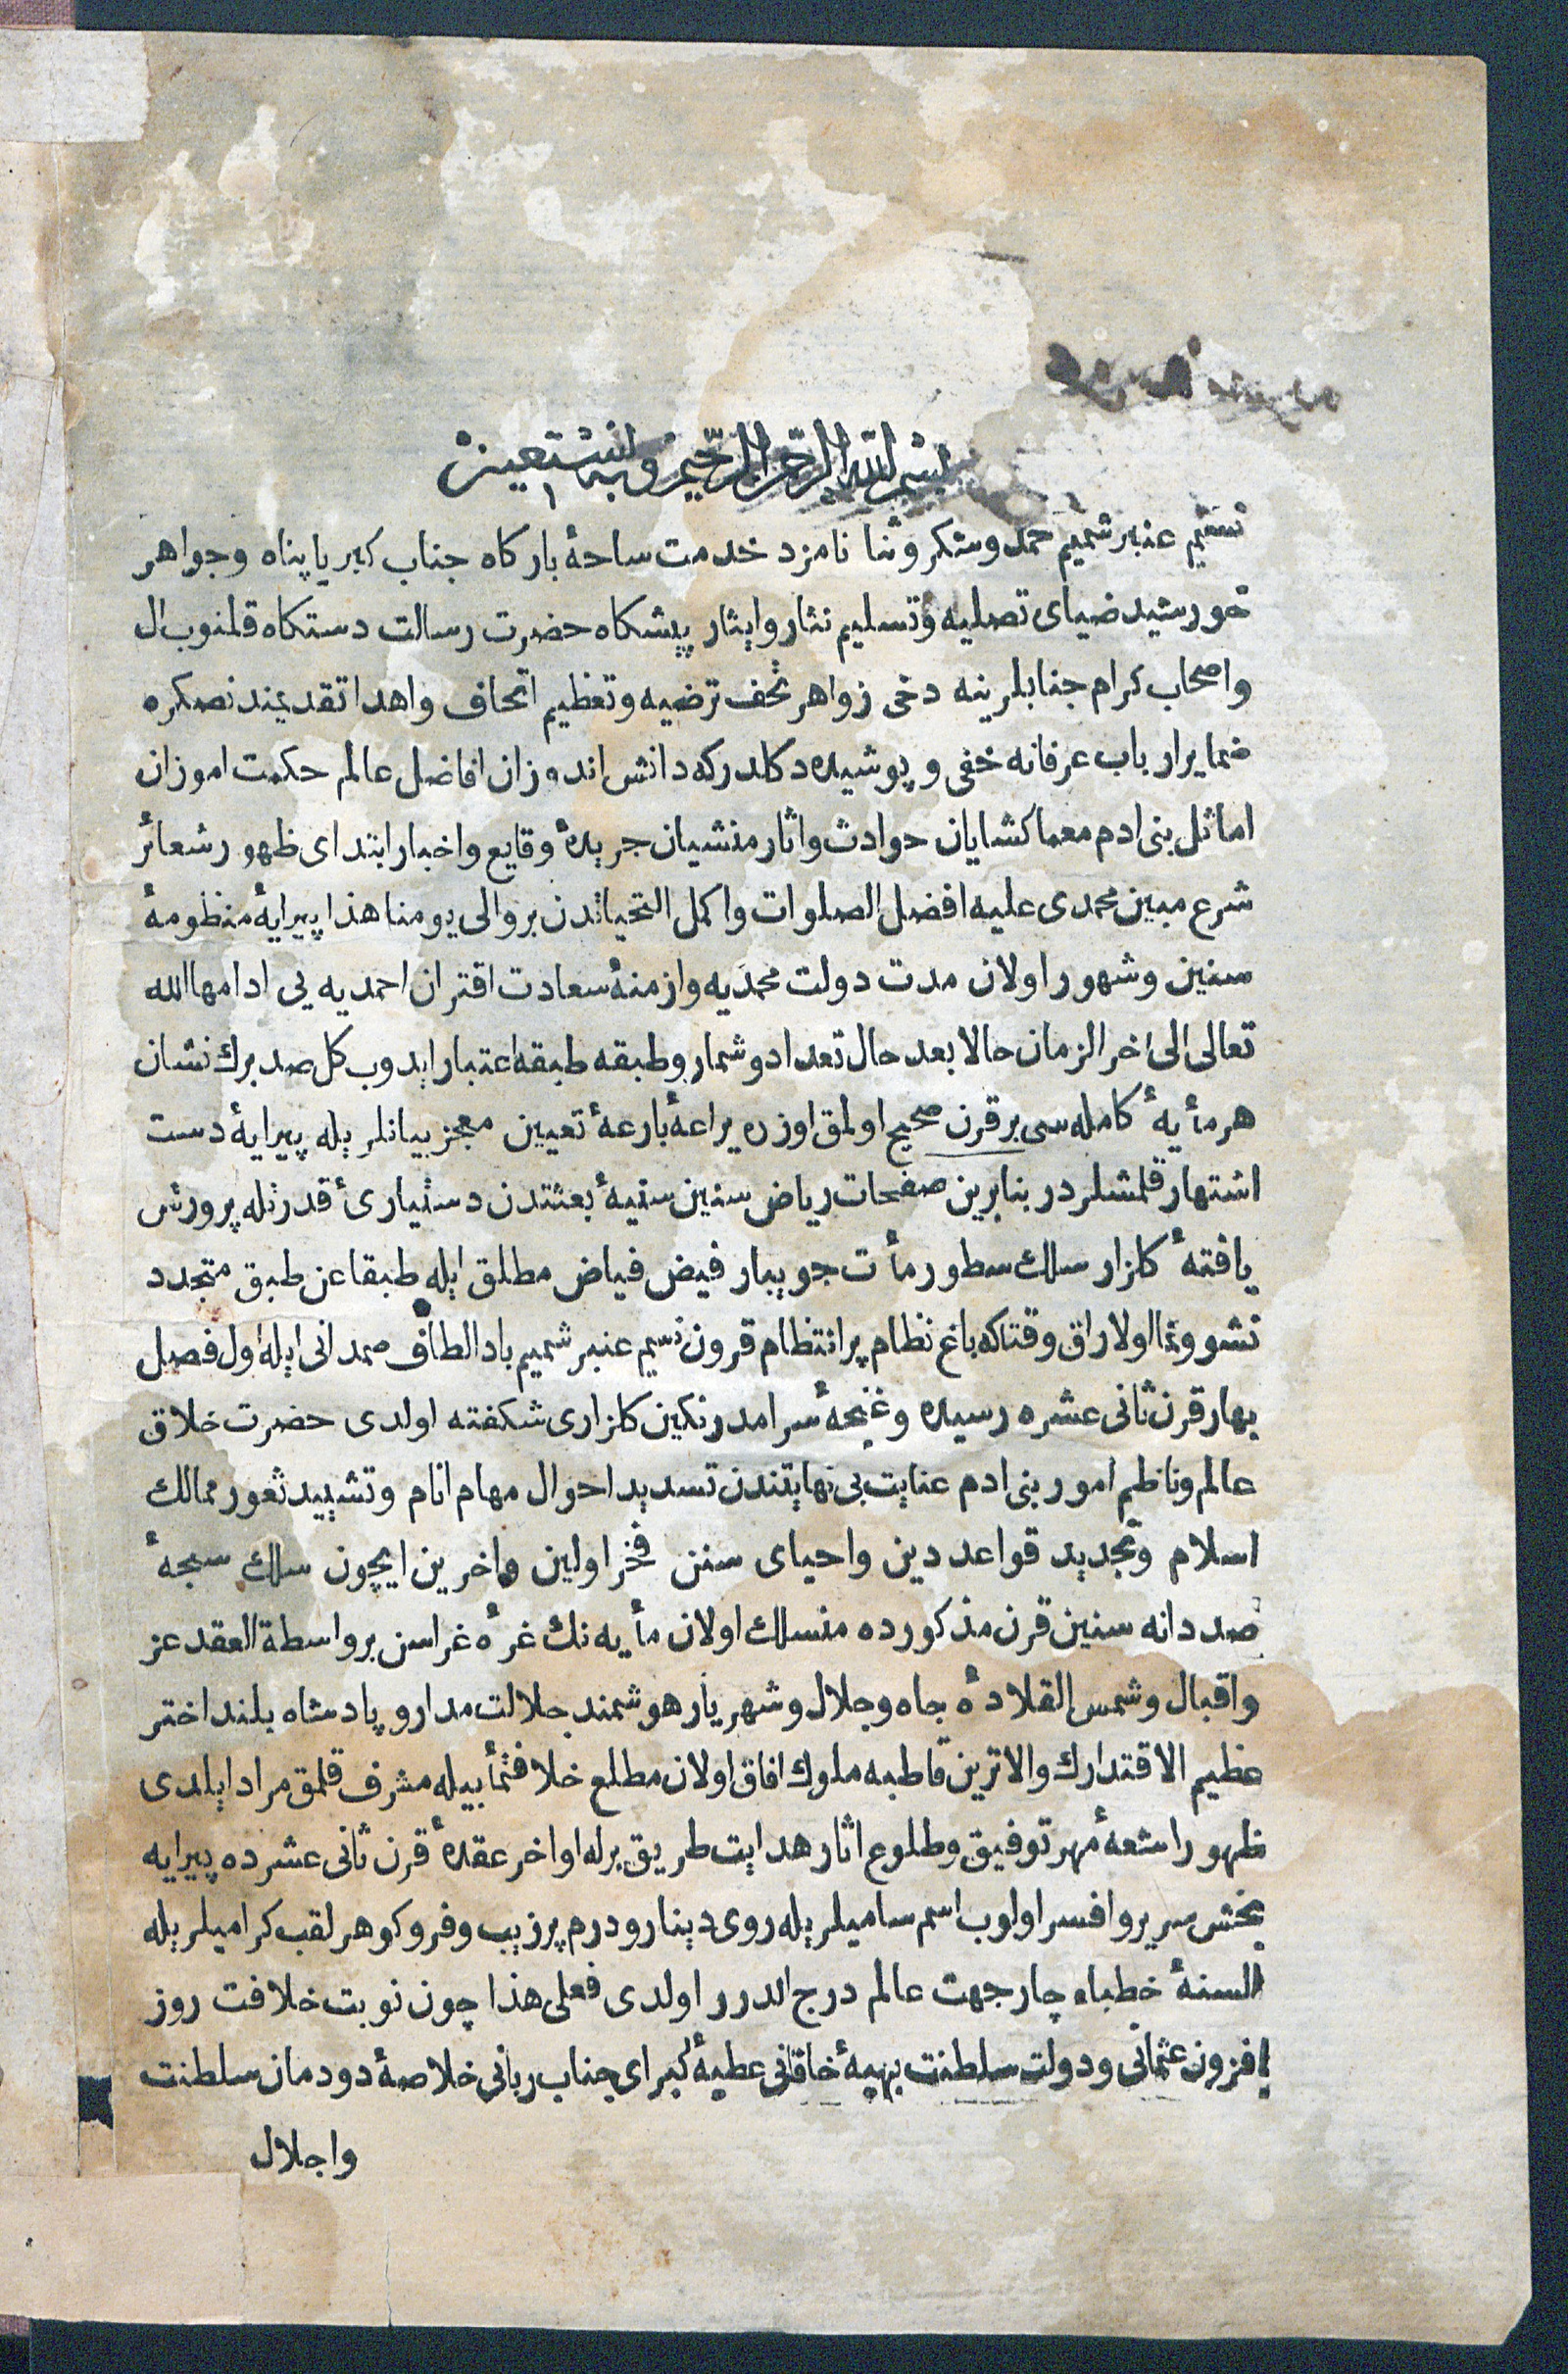 بسم الله الرحمن الرحيم وبه نستعين
نسيم عنبر شميم حمد وشكر وثنا نامزد خدمت ساحهٔ باركاه جناب كبريا پناه وجواهر
خورشيد ضياى تصليه وتسليم نثار وايثار پيشكاه حضرت رسالت دستكاه قلنوب ال
واصحاب كرام جنابلرينه دخى زواهر تحف ترضيه وتعظيم اتحاف واهدا تقديمندنصكره
ضماير ارباب عرفانه خفى و پوشيده دكلدركه دانش اندوزان افاضل عالم حكمت اموزان
اماثل بنى ادم معما كشايان حوادث واثار منشيان جريدهٔ وقايع واخبار ابتداى ظهور شعائر
شرع مبين محمدى عليه افضل الصلوات واكمل التحياتدن برو الى يومنا هذا پيرايهٔ منظومهٔ
سنين وشهور اولان مدت دولت محمديه وازمنهٔ سعادت اقتران احمديه يى ادامها الله
تعالى الى اخر الزمان حالا بعد حال تعداد وشمار وطبقه طبقه اعتبار ايدوب كل صد برك نشان
هر مأيهٔ كامله سى بر قرن صحيح اولمق اوزره يراعهٔ بارعهٔ تعيين معجز بيانلر يله پيرايهٔ دست
اشتهار قلمشلردر بنابرين صفحات رياض سنين سنيهٔ بعثتدن دستيارىٔ قدرتله پرورش
يافتهٔ كلزار سلك سطور مأت جويبار فيض فياض مطلق ايله طبقا عن طبق متجدد
نشو ونما اولارق وقتاكه باغ نظام پر انتظام قرون نسيم عنبر شميم باد الطاف صمدانى ايله اول فصل
بهار قرن ثانى عشره رسيده وغنچهٔ سرامد رنكين كلزارى شكفته اولدى حضرت خلاق
عالم وناظم امور بنى ادم عنايت بى نهايتندن تسديد احوال مهام انام وتشييد ثغور ممالك
اسلام وتجديد قواعد دين واحياى سنن فخر اولين واخرين ايچون سلك سبحهٔ
صد دانه سنين قرن مذكورده منسلك اولان مأيه نك غرهٔ غراسن بر واسطة العقد عز
واقبال وشمس القلادهٔ جاه وجلال وشهريار هوشمند جلالت مدار وپادشاه بلند اختر
عظيم الاقتدارك والاترين قاطبه ملوك افاق اولان مطلع خلافتمأبيله مشرف قلمق مراد ايلدى
ظهور اشعهٔ مهر توفيق وطلوع اثار هدايت طريق برله اواخر عقدهٔ قرن ثانى عشرده پيرايه
بخش سرير وافسر اولوب اسم ساميلر يله روى دينار ودرم پر زيب وفر وكوهر لقب كراميلر يله
السنهٔ خطباء چار جهت عالم درج الدرر اولدى فعلى هذا چون نوبت خلافت روز
افزون عثمانى ودولت سلطنت بهيهٔ خاقانى عطيهٔ كبراى جناب ربانى خلاصهٔ دودمان سلطنت
واجلال